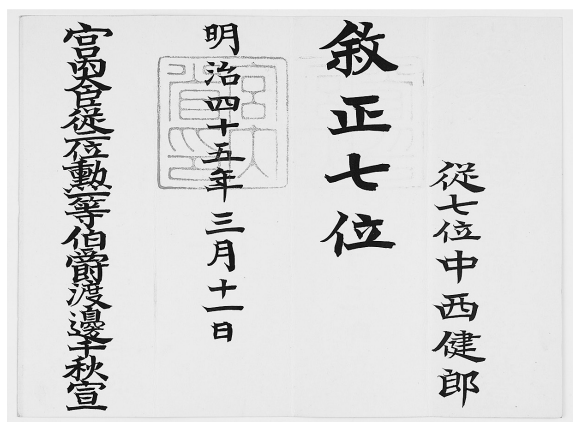 從七位中西健郎
敘正七位
明治四十五年三月十一日
宮內大臣從二位勲一等伯爵渡邊千秋宣